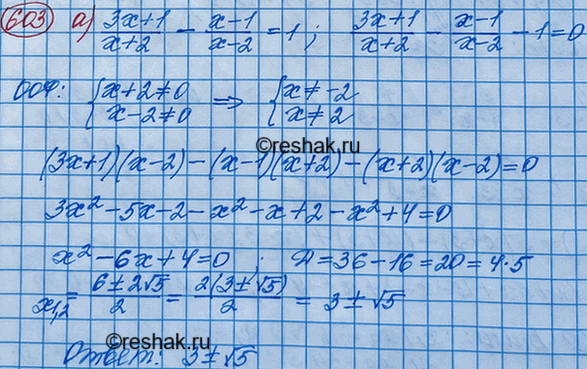 603 а) (3x+1)/(x+2) − (x−1)/(x−2) = 1 ; (3x+1)/(x+2) − (x−1)/(x−2) − 1 = 0
ООФ: { x+2≠0 ⇒ { x≠−2
{ x−2≠0 { x≠2
©reshak.ru
(3x+1)(x−2) − (x−1)(x+2) − (x+2)(x−2) = 0
3x² − 5x − 2 − x² − x + 2 − x² + 4 = 0
x² − 6x + 4 = 0 ; Д = 36 − 16 = 20 = 4·5
x₁,₂ = (6 ± 2√5)/2 = 2(3 ± √5)/2 = 3 ± √5
©reshak.ru
Ответ: 3 ± √5